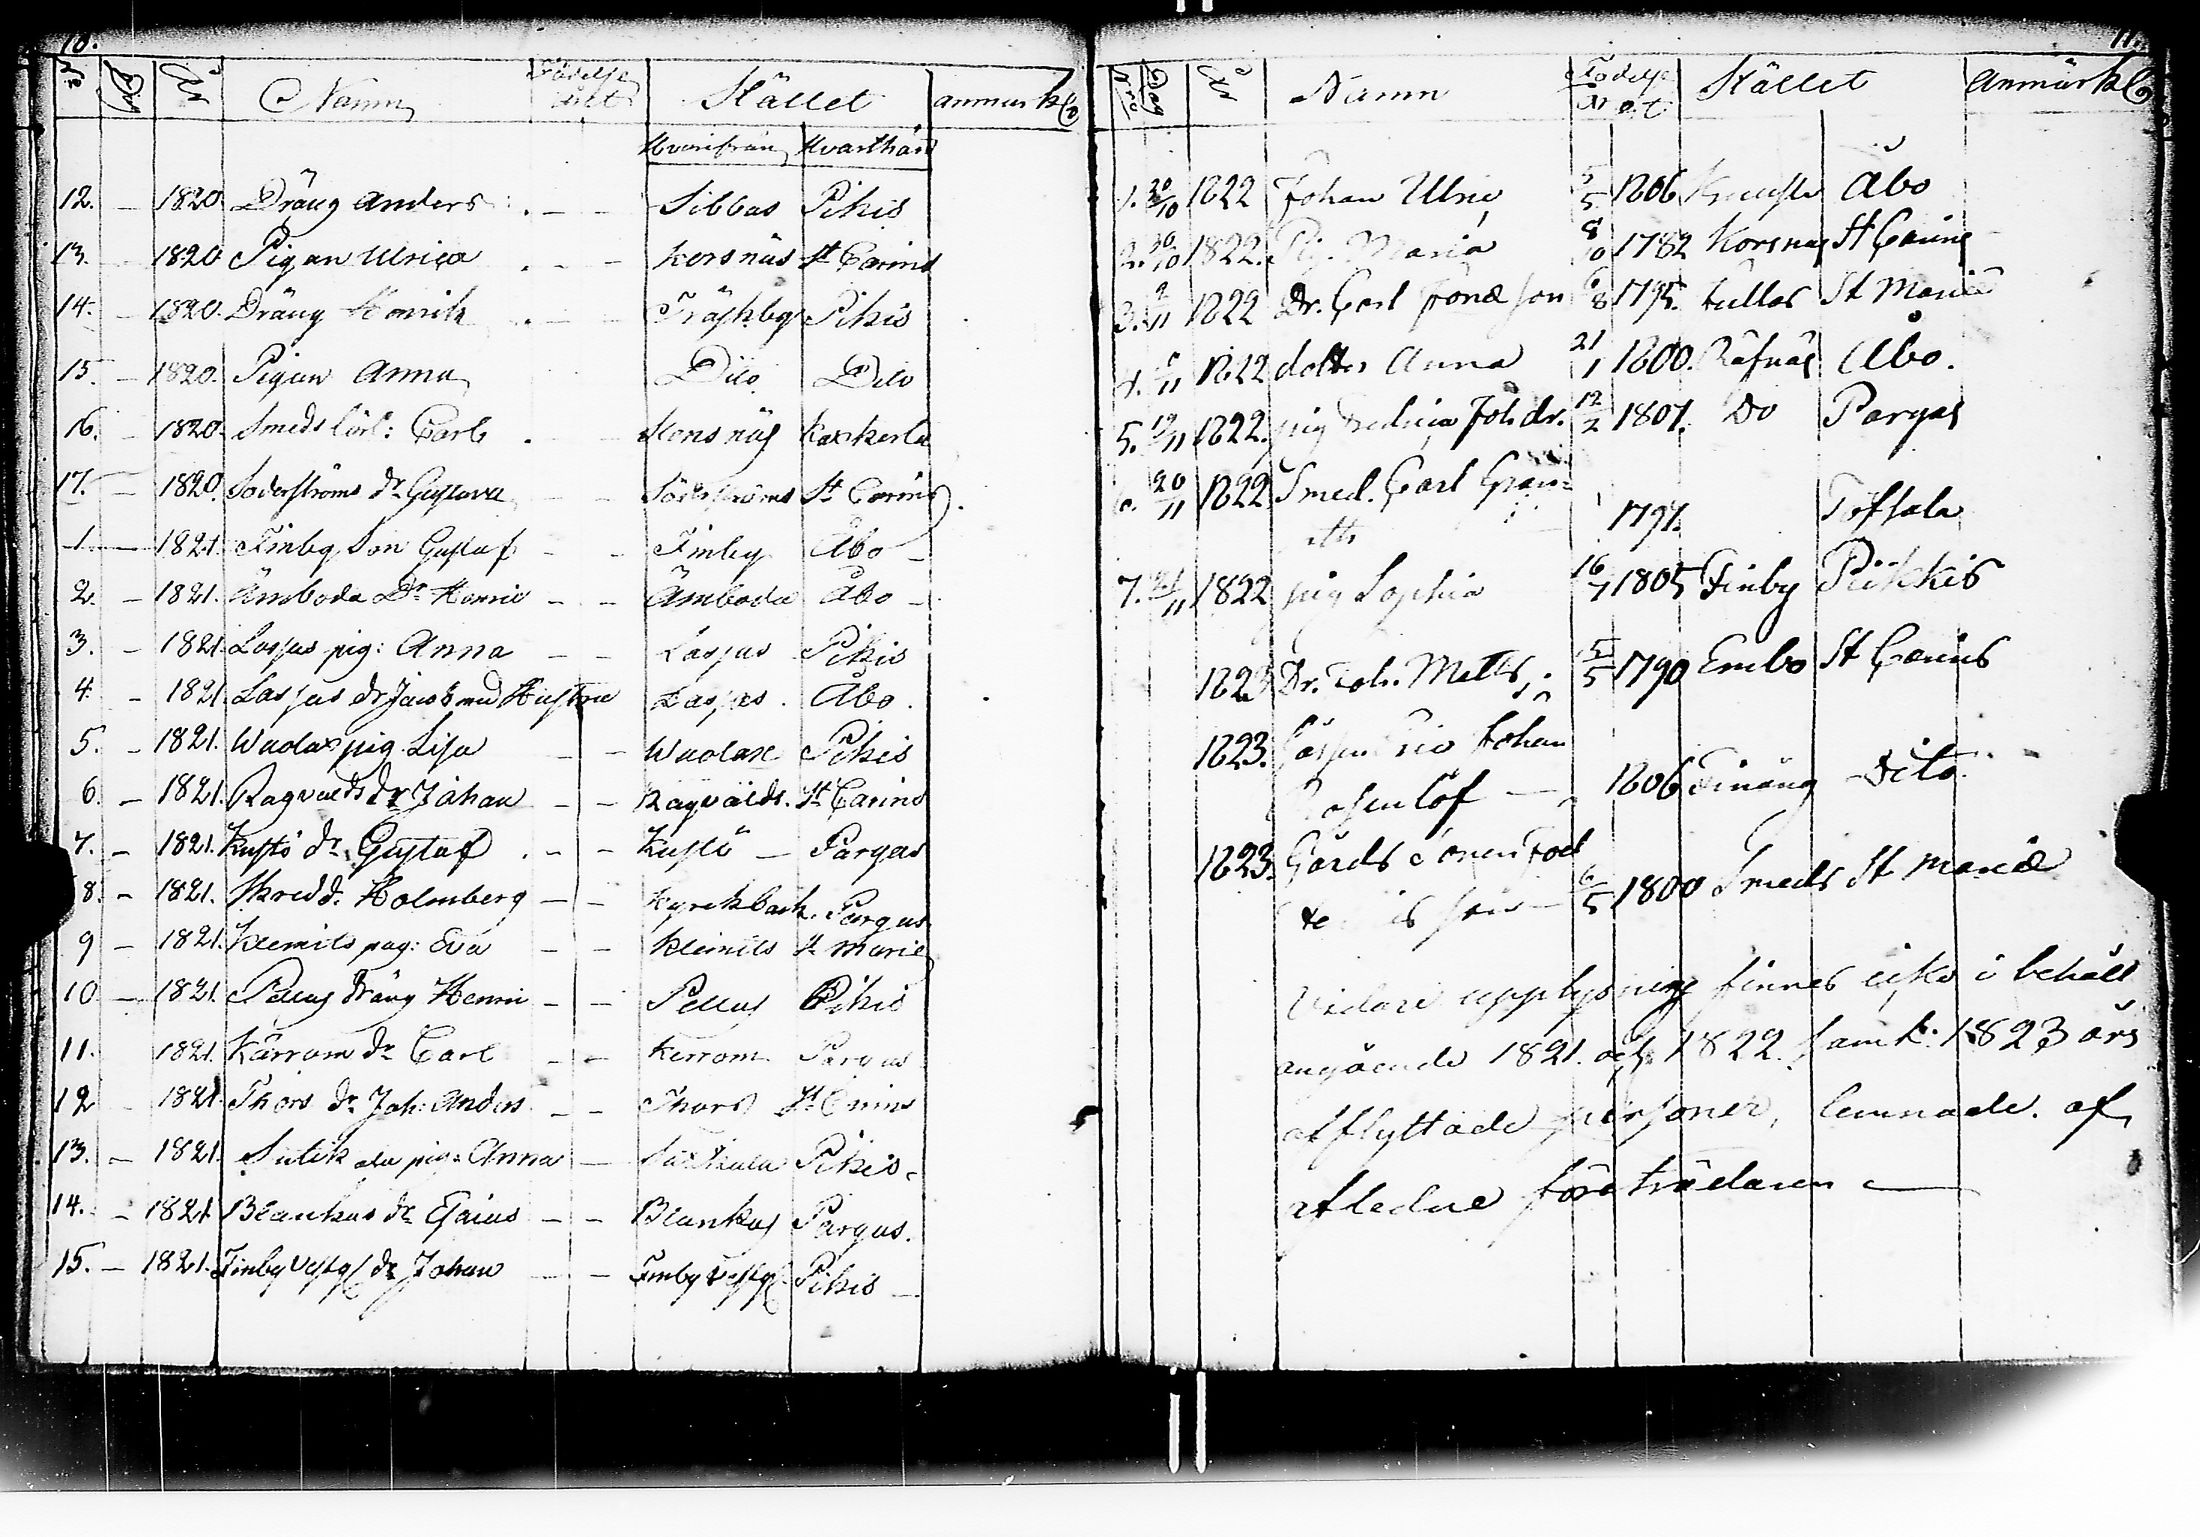 10.
No Dag År Namn Födelse året Stället anmärk
Hvarifrån Hvarthän
12. – 1820. Dräng Anders . – – Sibbas Pikis
13. – 1820. Pigan Ulrica . – – Korsnäs St Carins
14. – 1820. Dräng Henrik . – – Träskby Pikis
15. – 1820. Pigan Anna Dito Dito
16. – 1820. Smeds lärl: Carl . – Korsnäs Kaxkerta
17. – 1820. Söderströms dr Gustava – – Söderströms St Carins.
1. – 1821. Finby Son Gustaf – – Finby Åbo –
2. – 1821. Ämboda Dr Henric – – Ämboda Åbo –
3. – 1821. Laspas pig: Anna – – Laspas Pikis
4. – 1821. Laspas dr Jacob med Hustru Laspas. Åbo.
5. – 1821. Waolax pig. Lisa – – Waolax Pikis
6. – 1821. Ragvalds dr Johan – – Ragvalds. St Carins
7. – 1821. Kustö dr Gustaf . – – Kustö – Pargas
8. – 1821. Skredd. Holmberg – – Kyrckback. Pargas
9 – 1821. Klemits pag: Eva – – Klemits St Marie
10 – 1821. Pellas dräng Henric – – Pellas Pikis
11. 1821. Kärrom dr Carl – – Kerrom Pargas
12 – 1821. Thors dr Joh: Anders – – Thors St Carins
13. – 1821. pig: Anna – Pikis –
14. – 1821. Blankas dr Esaias – – Blankas Pargas.
15. – 1821. Finby Vestg dr Johan – – Finby Vestg Pikis –
11.
Nro Dag År Namn Födelse året Stället Anmärk
1. 20/10 1822 Johan Ulric 5/5 1806 Åbo
2. 20/10 1822. Pig. Maria 8/10 1782 Korsnäs St Carins –
3. 2/11 1822 Dr. Carl Jonæ son 6/8 1795. Tullas St Mariæ
4. 11 1822 dotter Anna 21/1 1800. Räfnäs Åbo.
5. 11 1822. pig Fredrica Joh. dr. 12/2 1801. Do Pargas
6. 20/11 1822 Smed. Carl
1791. Töfsala
7. 21/11 1822 pig Sophia 16/7 1805 Finby Piikkis
1823 Dr. Joh. Matts 5/5 1790 Embo St Carins
1823. Johan
Rosenlöf – 1806 Dito.
1823. Gårds Sonen
son – 6/5 1800 Smeds St Mariæ
Vidare upplysning finnes icke i behåll
angående 1821. och 1822. samt: 1823 års
afflyttade personer, lemnade. af
afledne företrädaren –